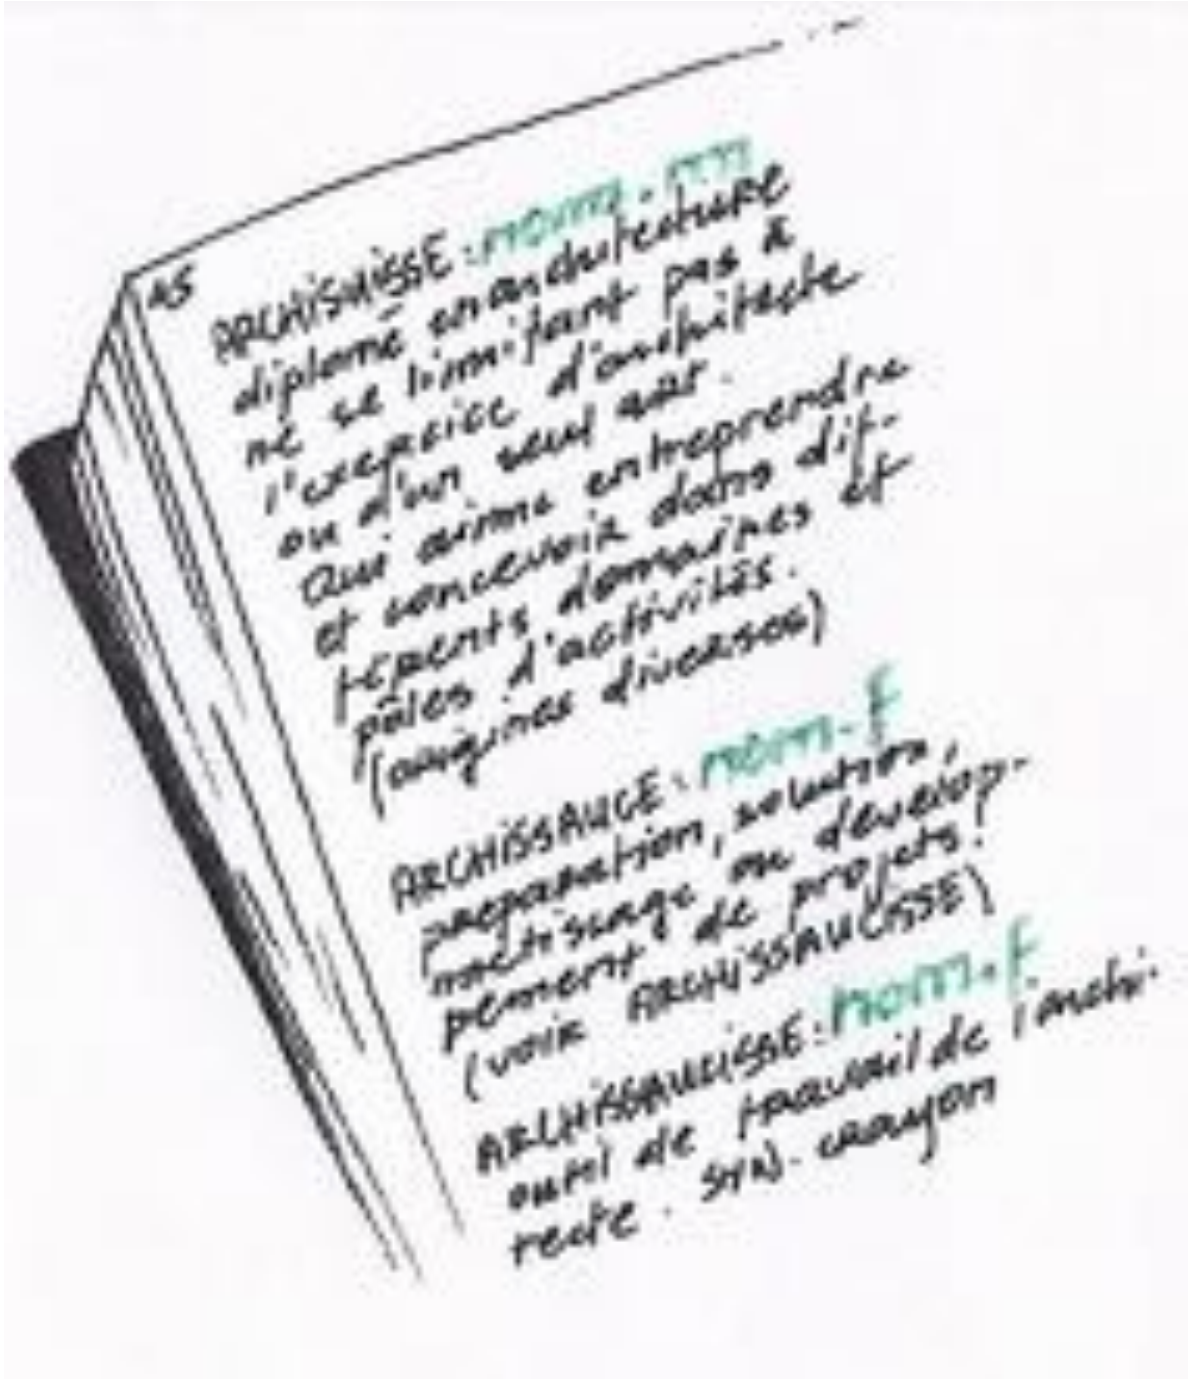 45
ARCHISUISSE : nom. m
diplomé en architecture
ne se limitant pas à
l'exercice d'architecte
ou d'un seul art.
Qui aime entreprendre
et concevoir dans dif-
férents domaines et
pôles d'activités.
(origines diverses)
ARCHISSAUCE : nom. F
preparation, solution,
metissage ou develop-
pement de projets.
(voir ARCHISSAUCISSE)
ARCHISSAUCISSE : nom. F
outil de travail de l'archi-
tecte. SYN. crayon